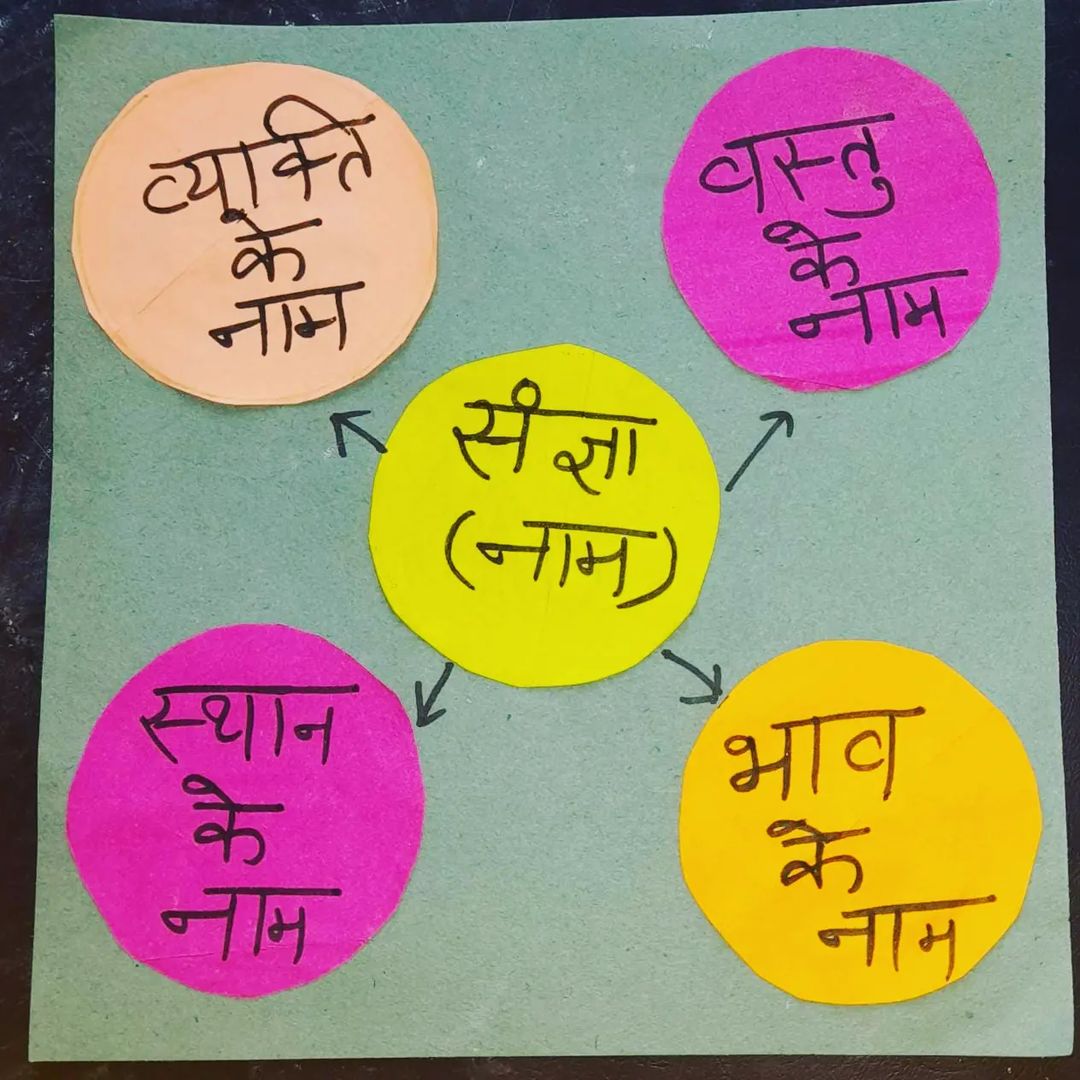 व्यक्ति
के
नाम
वस्तु
के
नाम
संज्ञा
(नाम)
स्थान
के
नाम
भाव
के
नाम